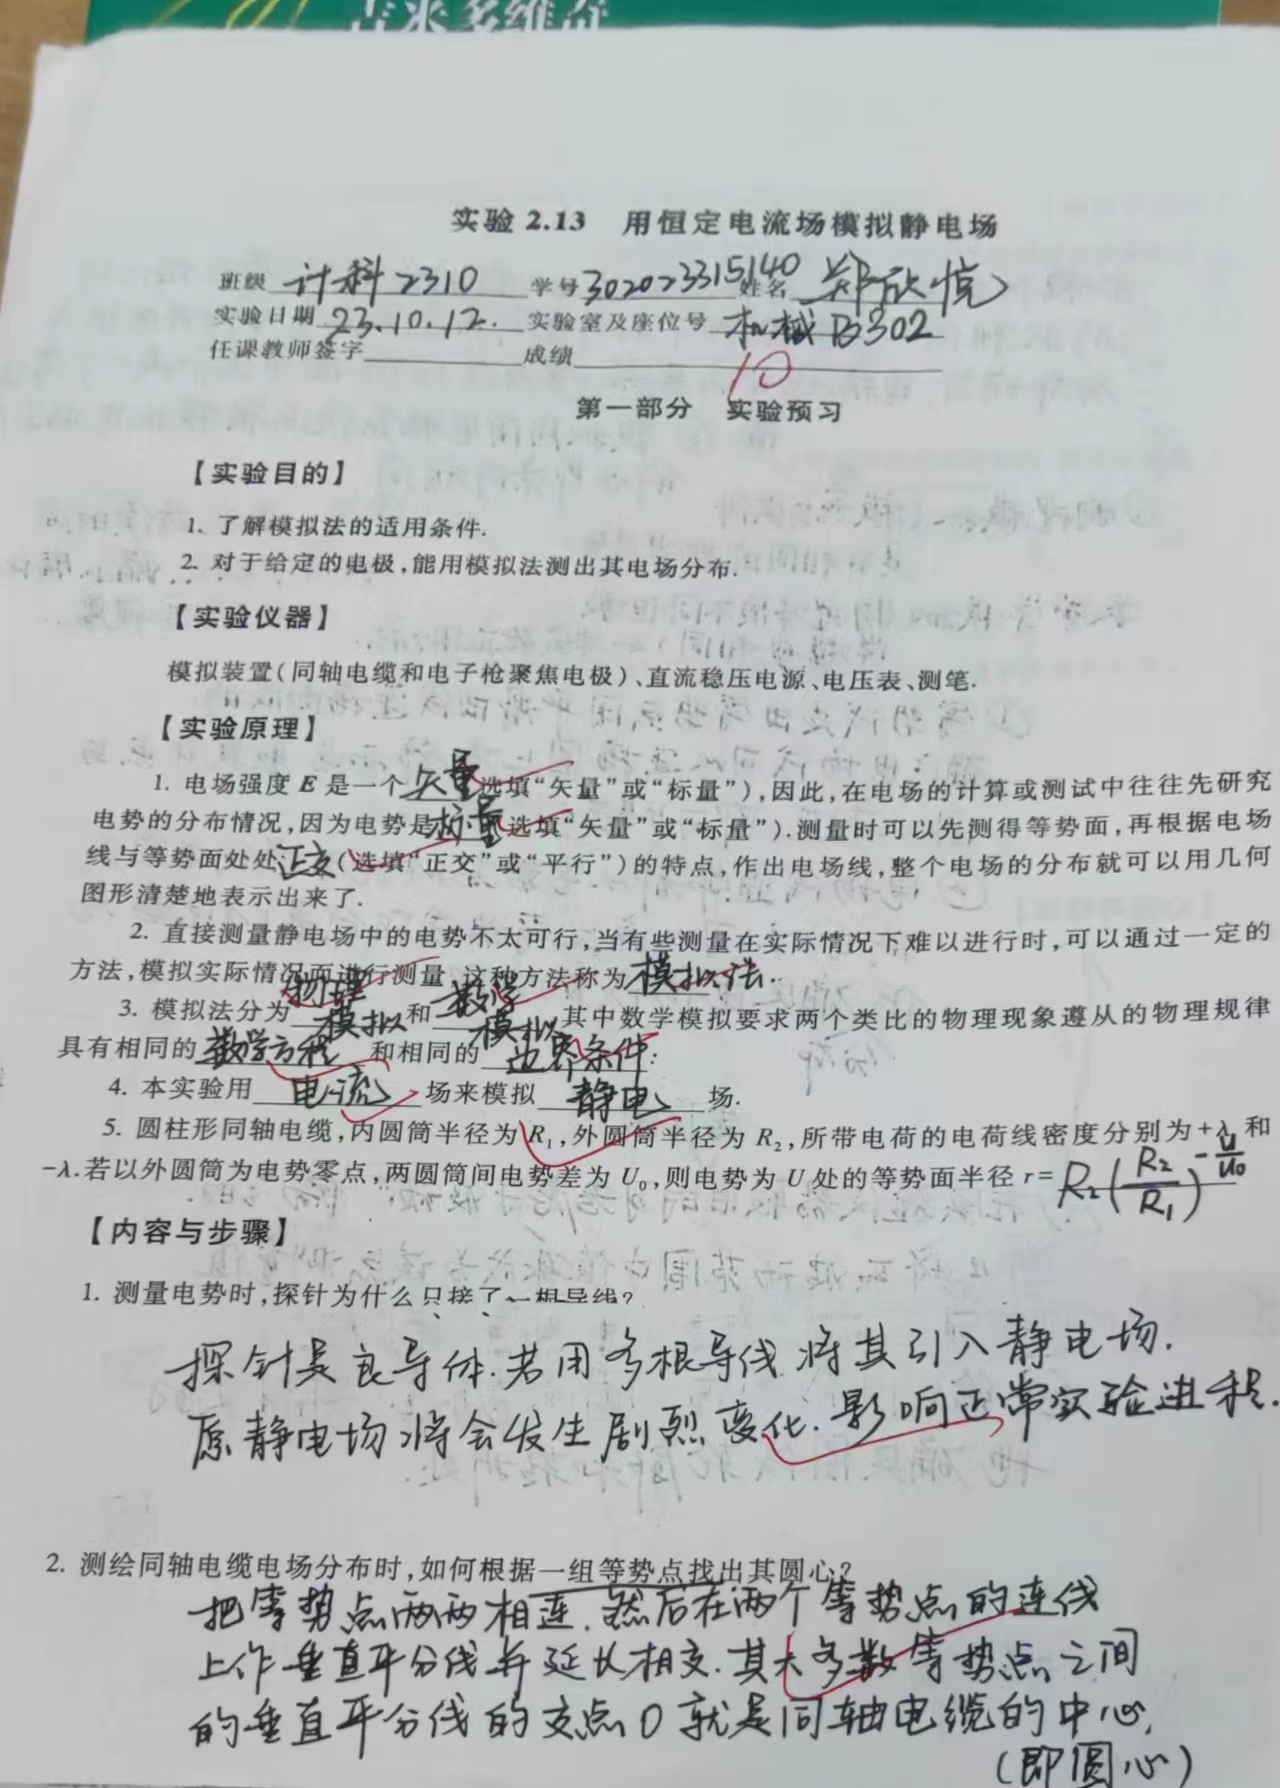 实验 2.13 用恒定电流场模拟静电场
班级 计科2310 学号 302023315140 姓名 郑欣悦
实验日期 23.10.12. 实验室及座位号 机械B302
任课教师签字 成绩 10
第一部分 实验预习
【实验目的】
1. 了解模拟法的适用条件.
2. 对于给定的电极,能用模拟法测出其电场分布.
【实验仪器】
模拟装置(同轴电缆和电子枪聚焦电极)、直流稳压电源、电压表、测笔.
【实验原理】
1. 电场强度 E 是一个 矢量 选填“矢量”或“标量”),因此,在电场的计算或测试中往往先研究
电势的分布情况,因为电势是 标量 选填“矢量”或“标量”).测量时可以先测得等势面,再根据电场
线与等势面处处 正交 (选填“正交”或“平行”)的特点,作出电场线,整个电场的分布就可以用几何
图形清楚地表示出来了.
2. 直接测量静电场中的电势不太可行,当有些测量在实际情况下难以进行时,可以通过一定的
方法,模拟实际情况而进行测量,这种方法称为 模拟法.
3. 模拟法分为 物理模拟 和 数学模拟 其中数学模拟要求两个类比的物理现象遵从的物理规律
具有相同的 数学方程 和相同的 边界条件.
4. 本实验用 电流 场来模拟 静电 场.
5. 圆柱形同轴电缆,内圆筒半径为 R₁,外圆筒半径为 R₂,所带电荷的电荷线密度分别为+λ 和
-λ.若以外圆筒为电势零点,两圆筒间电势差为 U₀,则电势为 U 处的等势面半径 r= R₂(R₂/R₁)^(-U/U₀)
【内容与步骤】
1. 测量电势时,探针为什么只接了一根导线?
探针是良导体.若用多根导线将其引入静电场.
原静电场将会发生剧烈变化.影响正常实验进程.
2. 测绘同轴电缆电场分布时,如何根据一组等势点找出其圆心?
把等势点两两相连.然后在两个等势点的连线
上作垂直平分线并延长相交.其大多数等势点之间
的垂直平分线的交点O就是同轴电缆的中心.
(即圆心)